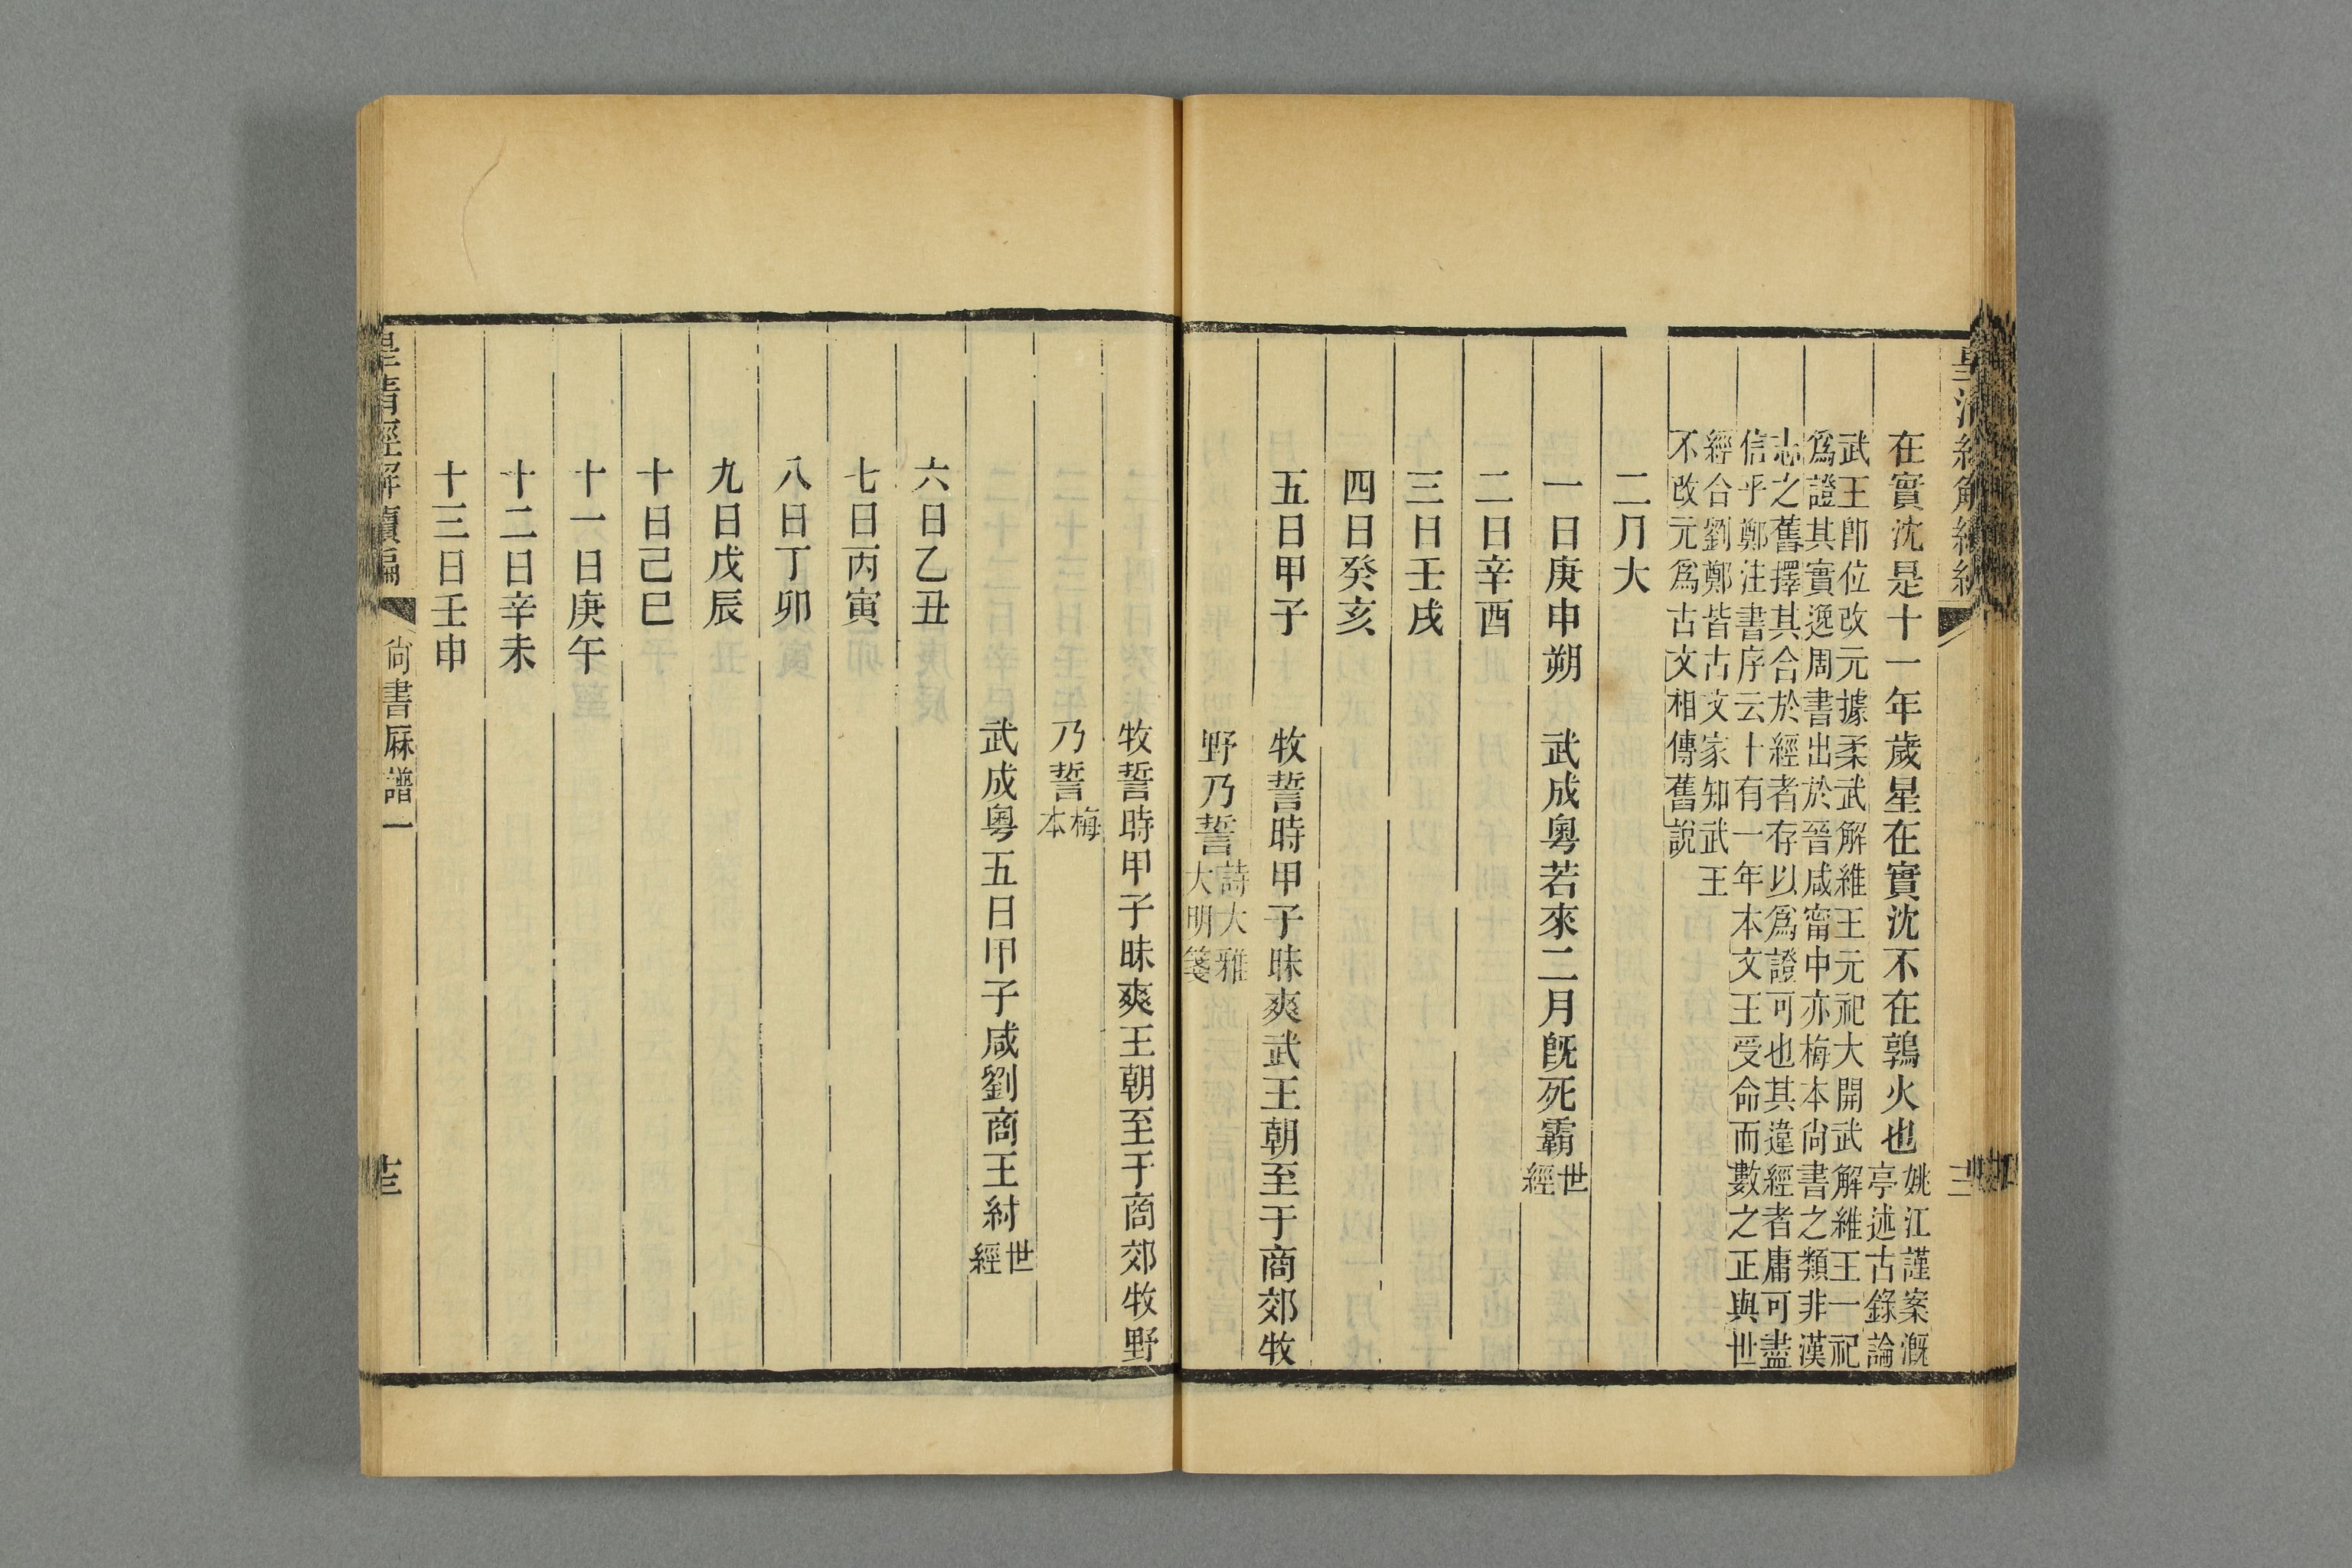 在實沈是十一年歲星在實沈不在鶉火也姚江謹案漑
亭述古錄論
武王卽位改元據柔武解維王元祀大開武解維王一祀
爲證其實逸周書出於晉咸甯中亦梅本尙書之類非漢
志之舊擇其合於經者存以爲證可也其違經者庸可盡
信乎鄭注書序云十有一年本文王受命而數之正與世
經合劉鄭皆古文家知武王
不改元爲古文相傳舊說
二月大
一日庚申朔　武成粵若來二月旣死霸世經
二日辛酉
三日壬戌
四日癸亥
五日甲子　牧誓時甲子昧爽武王朝至于商郊牧
野乃誓詩大雅
大明箋
牧誓時甲子昧爽王朝至于商郊牧野
乃誓梅本
武成粵五日甲子咸劉商王紂世經
六日乙丑
七日丙寅
八日丁卯
九日戊辰
十日己巳
十一日庚午
十二日辛未
十三日壬申
皇清經解續編　尙書厤譜一